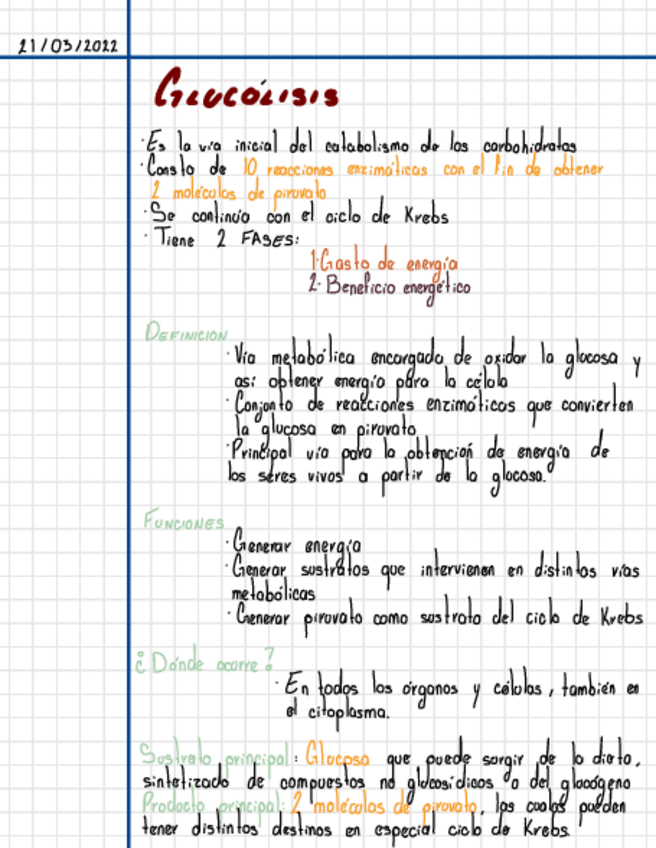 21/03/2022
GLUCÓLISIS
·Es la vía inicial del catabolismo de los carbohidratos
·Consta de 10 reacciones enzimáticas con el fin de obtener
2 moléculas de piruvato
·Se continúa con el ciclo de Krebs
·Tiene 2 FASES:
1·Gasto de energía
2·Beneficio energético
DEFINICIÓN
·Vía metabólica encargada de oxidar la glucosa y
así obtener energía para la célula
·Conjunto de reacciones enzimáticas que convierten
la glucosa en piruvato
·Principal vía para la obtención de energía de
los seres vivos a partir de la glucosa.
FUNCIONES
·Generar energía
·Generar sustratos que intervienen en distintas vías
metabólicas
·Generar piruvato como sustrato del ciclo de Krebs
¿Dónde ocurre?
·En todos los órganos y células, también en
el citoplasma.
Sustrato principal: Glucosa que puede surgir de la dieta,
sintetizado de compuestos no glucosídicos o del glucógeno
Producto principal: 2 moléculas de piruvato, las cuales pueden
tener distintos destinos en especial ciclo de Krebs.